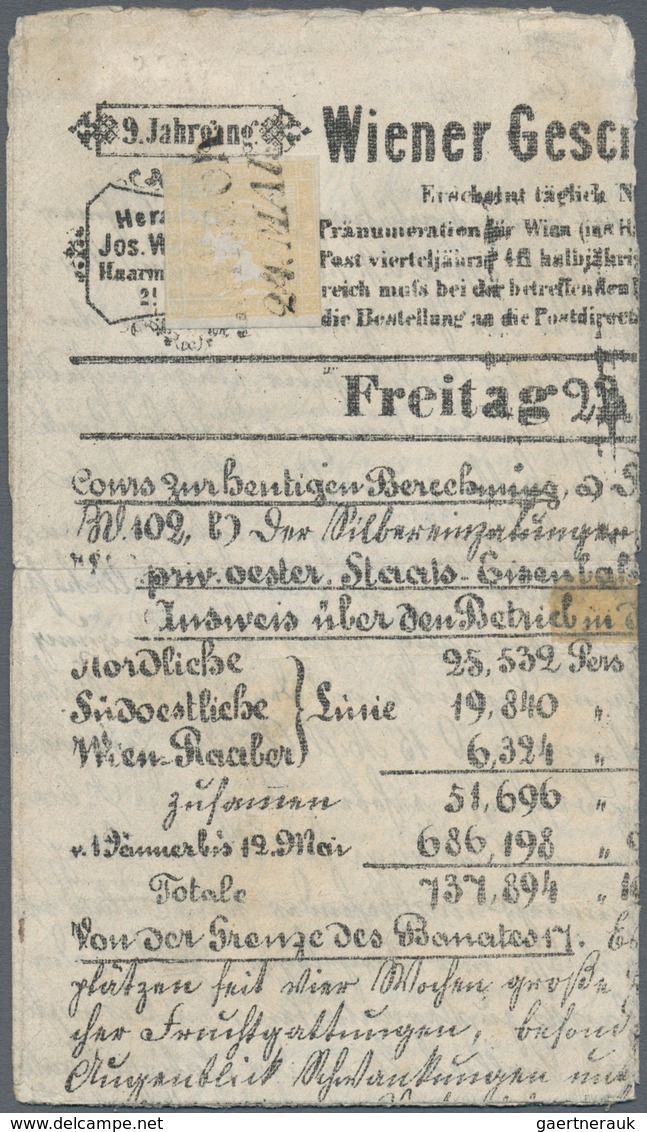 9. Jahrgang
Wiener Gesc
Erscheint täglich N
Hera
Jos. W
Haarm
Pränumeration für Wien (ins H
Post vierteljährig 4fl halbjähri
reich muss bei der betreffenden
die Bestellung an die Postdirect
24. MAI
Freitag 22
Cours zur heutigen Berechnung, a) S
W. 102, b) Der Silbereinzalungen
priv. oester. Staats-Eisenbah
Ausweis über den Betrieb in d
Nordliche 25,532 Pers
Südoestliche Linie 19,840 "
Wien-Raaber 6,324 "
zusammen 51,696 "
v. 1 Jänner bis 12. Mai 686,198 "
Totale 737,894 "
Von der Grenze des Banates 17. E
plätzen seit vier Wochen große
cher Fruchtgattungen, besond
Augenblick Schwankungen und
gaertnerauk